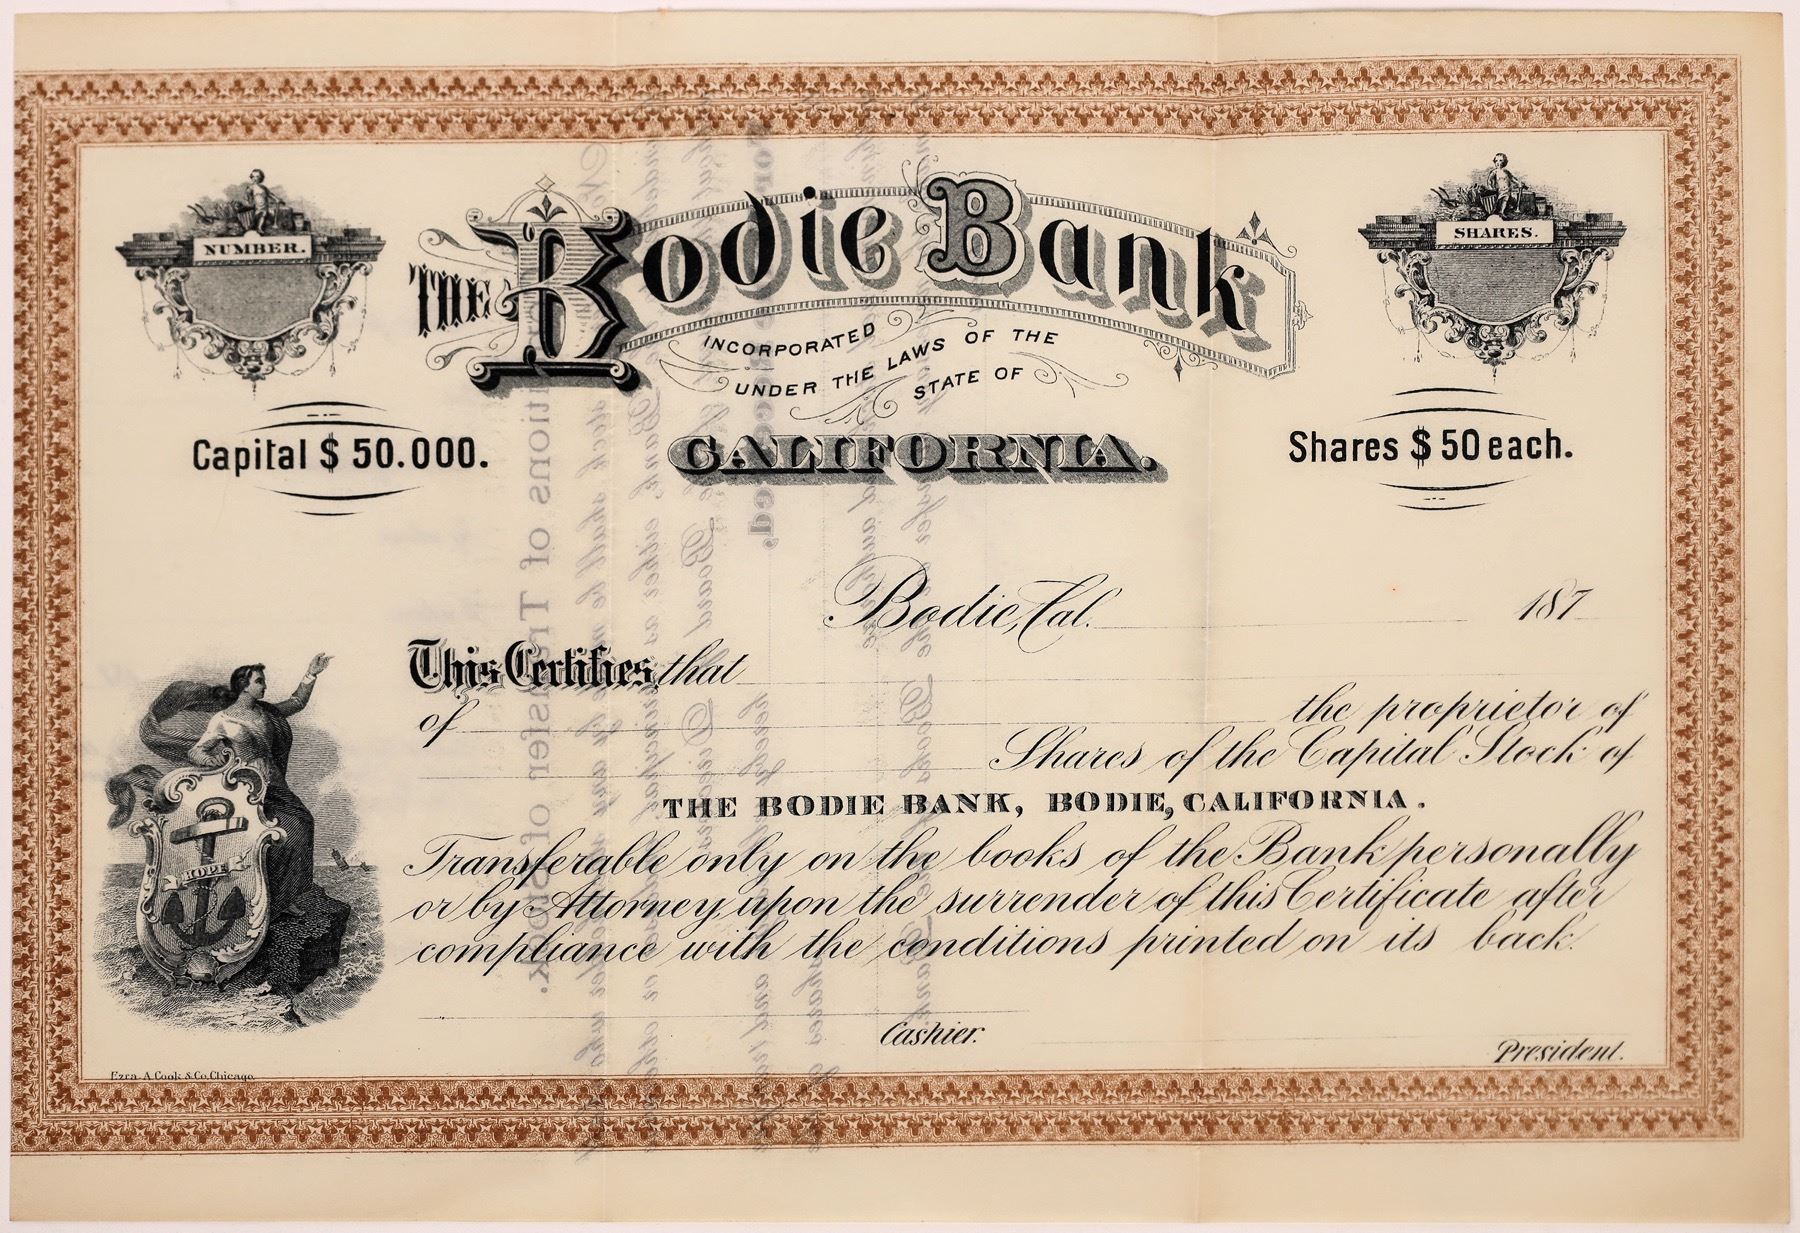 NUMBER.
SHARES.
THE Bodie Bank
INCORPORATED
UNDER THE LAWS OF THE
STATE OF
CALIFORNIA.
Capital $ 50.000.
Shares $ 50 each.
Bodie, Cal. 187
This Certifies that
of the proprietor of
Shares of the Capital Stock of
THE BODIE BANK, BODIE, CALIFORNIA.
Transferable only on the books of the Bank personally
or by Attorney, upon the surrender of this Certificate after
compliance with the conditions printed on its back.
HOPE
Cashier.
President.
Ezra A. Cook & Co. Chicago